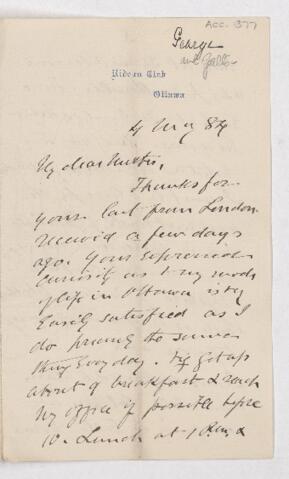 Acc. 377
George
Rideau Club
Ottawa
4 May 84
My dear
Thanks for
your last from London
received a few days
ago. Your expressed
curiosity as to my mode
of life in Ottawa is very
easily satisfied as I
do the same
thing every day. I get up
about 9 breakfast & reach
my office if possible before
10. Lunch at 1 &